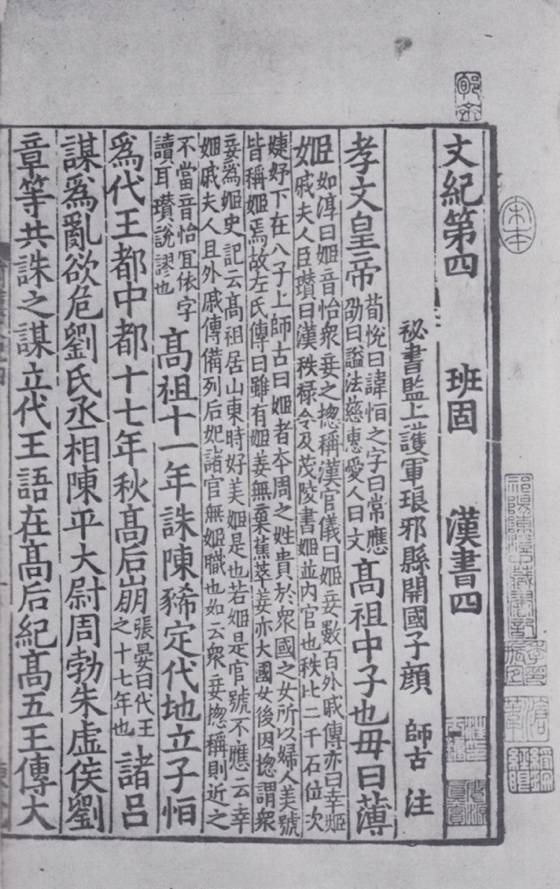 文紀第四 班固 漢書四
祕書監上護軍琅邪縣開國子顔 師古 注
孝文皇帝
荀悅曰諱恒之字曰常應
劭曰謚法慈惠愛人曰文
髙祖中子也毋曰薄
姬
如淳曰姬音怡衆妾之揔稱漢官儀曰姬妾數百外戚傳亦曰幸姬
戚夫人臣瓚曰漢秩禄令及茂陵書姬並内官也秩比二千石位次
婕妤下在八子上師古曰姬者夲周之姓貴於衆國之女所以婦人美號
皆稱姬焉故左氏傳曰雖有姬姜無棄蕉萃姜亦大國女後因揔謂衆
妾爲姬史記云髙祖居山東時好美姬是也若姬是官號不應云幸
姬戚夫人且外戚傳備列后妃諸官無姬職也如云衆妾揔稱則近之
不當音怡冝依字
讀耳瓚說謬也
髙祖十一年誅陳豨定代地立子恒
爲代王都中都十七年秋髙后崩
張晏曰代王
之十七年也
諸吕
謀爲亂欲危劉氏丞相陳平大尉周勃朱虛侯劉
章等共誅之謀立代王語在髙后紀髙五王傳大